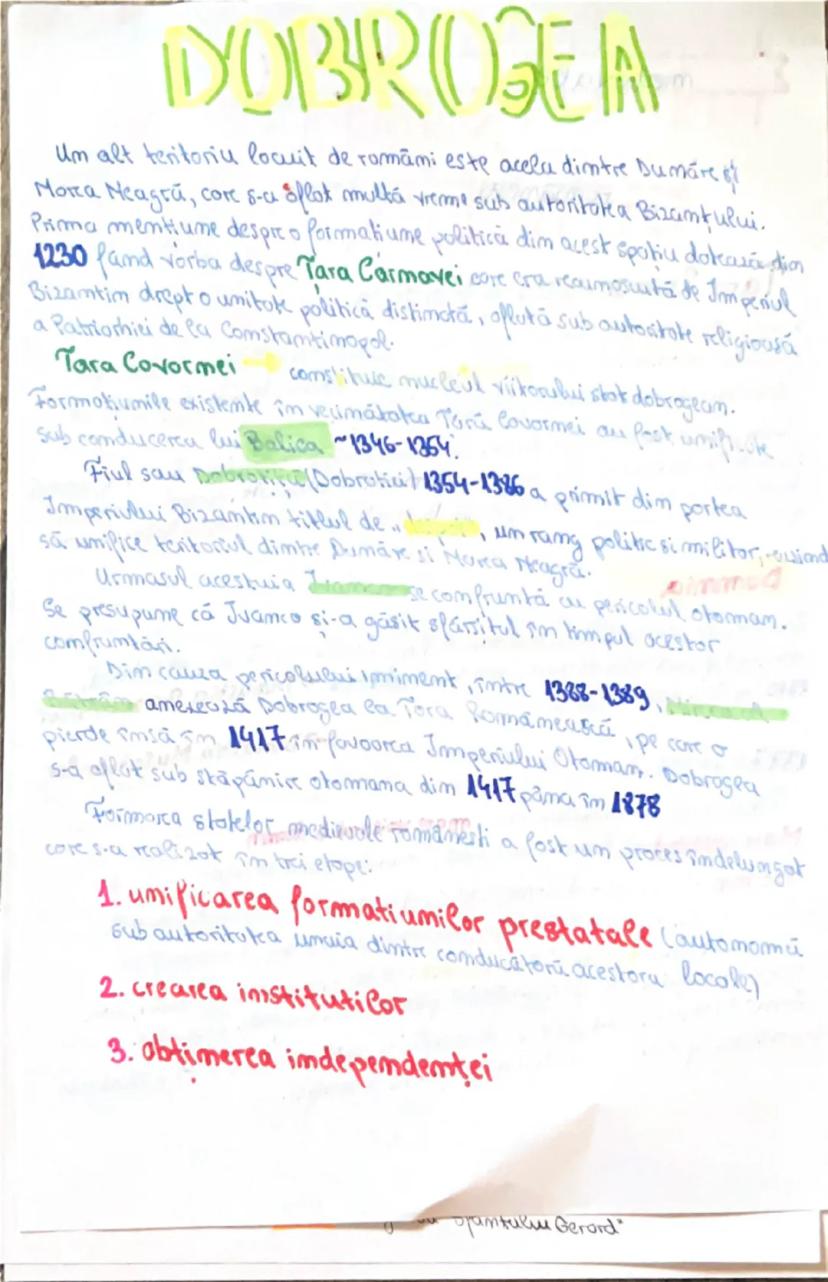 DOBROGEA
Un alt teritoriu locuit de români este acela dintre Dunăre și
Marea Neagră, care s-a aflat multă vreme sub autoritatea Bizanțului.
Prima mențiune despre o formațiune politică din acest spațiu datează din
1230 fiind vorba despre Țara Carmavei care era recunoscută de Imperiul
Bizantin drept o unitate politică distinctă, aflată sub autoritate religioasă
a Patriarhiei de la Constantinopol.
Tara Cavarnei → constituie nucleul viitorului stat dobrogean.
Formațiunile existente în vecinătatea Țării Cavarnei au fost unificate
sub conducerea lui Balica ~1346-1354.
Fiul sau Dobrotiță (Dobrotici) 1354-1386 a primit din partea
Imperiului Bizantin titlul de „ , un rang politic si militar, reusind
să unifice teritoriul dintre Dunăre si Marea Neagră.
Urmasul acestuia Ivanco se confruntă cu pericolul otoman.
Se presupune că Ivanco și-a găsit sfârsitul în timpul acestor
confruntări.
Din cauza pericolului iminent, între 1388-1389, Mircea cel
Bătrân anexează Dobrogea la Tara Românească, pe care o
pierde însă în 1417 în favoarea Imperiului Otoman. Dobrogea
s-a aflat sub stăpânire otomana din 1417 pâna în 1878
Formarea statelor medievale românesti a fost un proces îndelungat
care s-a realizat în trei etape:
1. unificarea formatiunilor prestatale (autonomii
sub autoritatea unuia dintre conducătorii acestora locale)
2. crearea institutilor
3. obținerea independenței
Gerard"